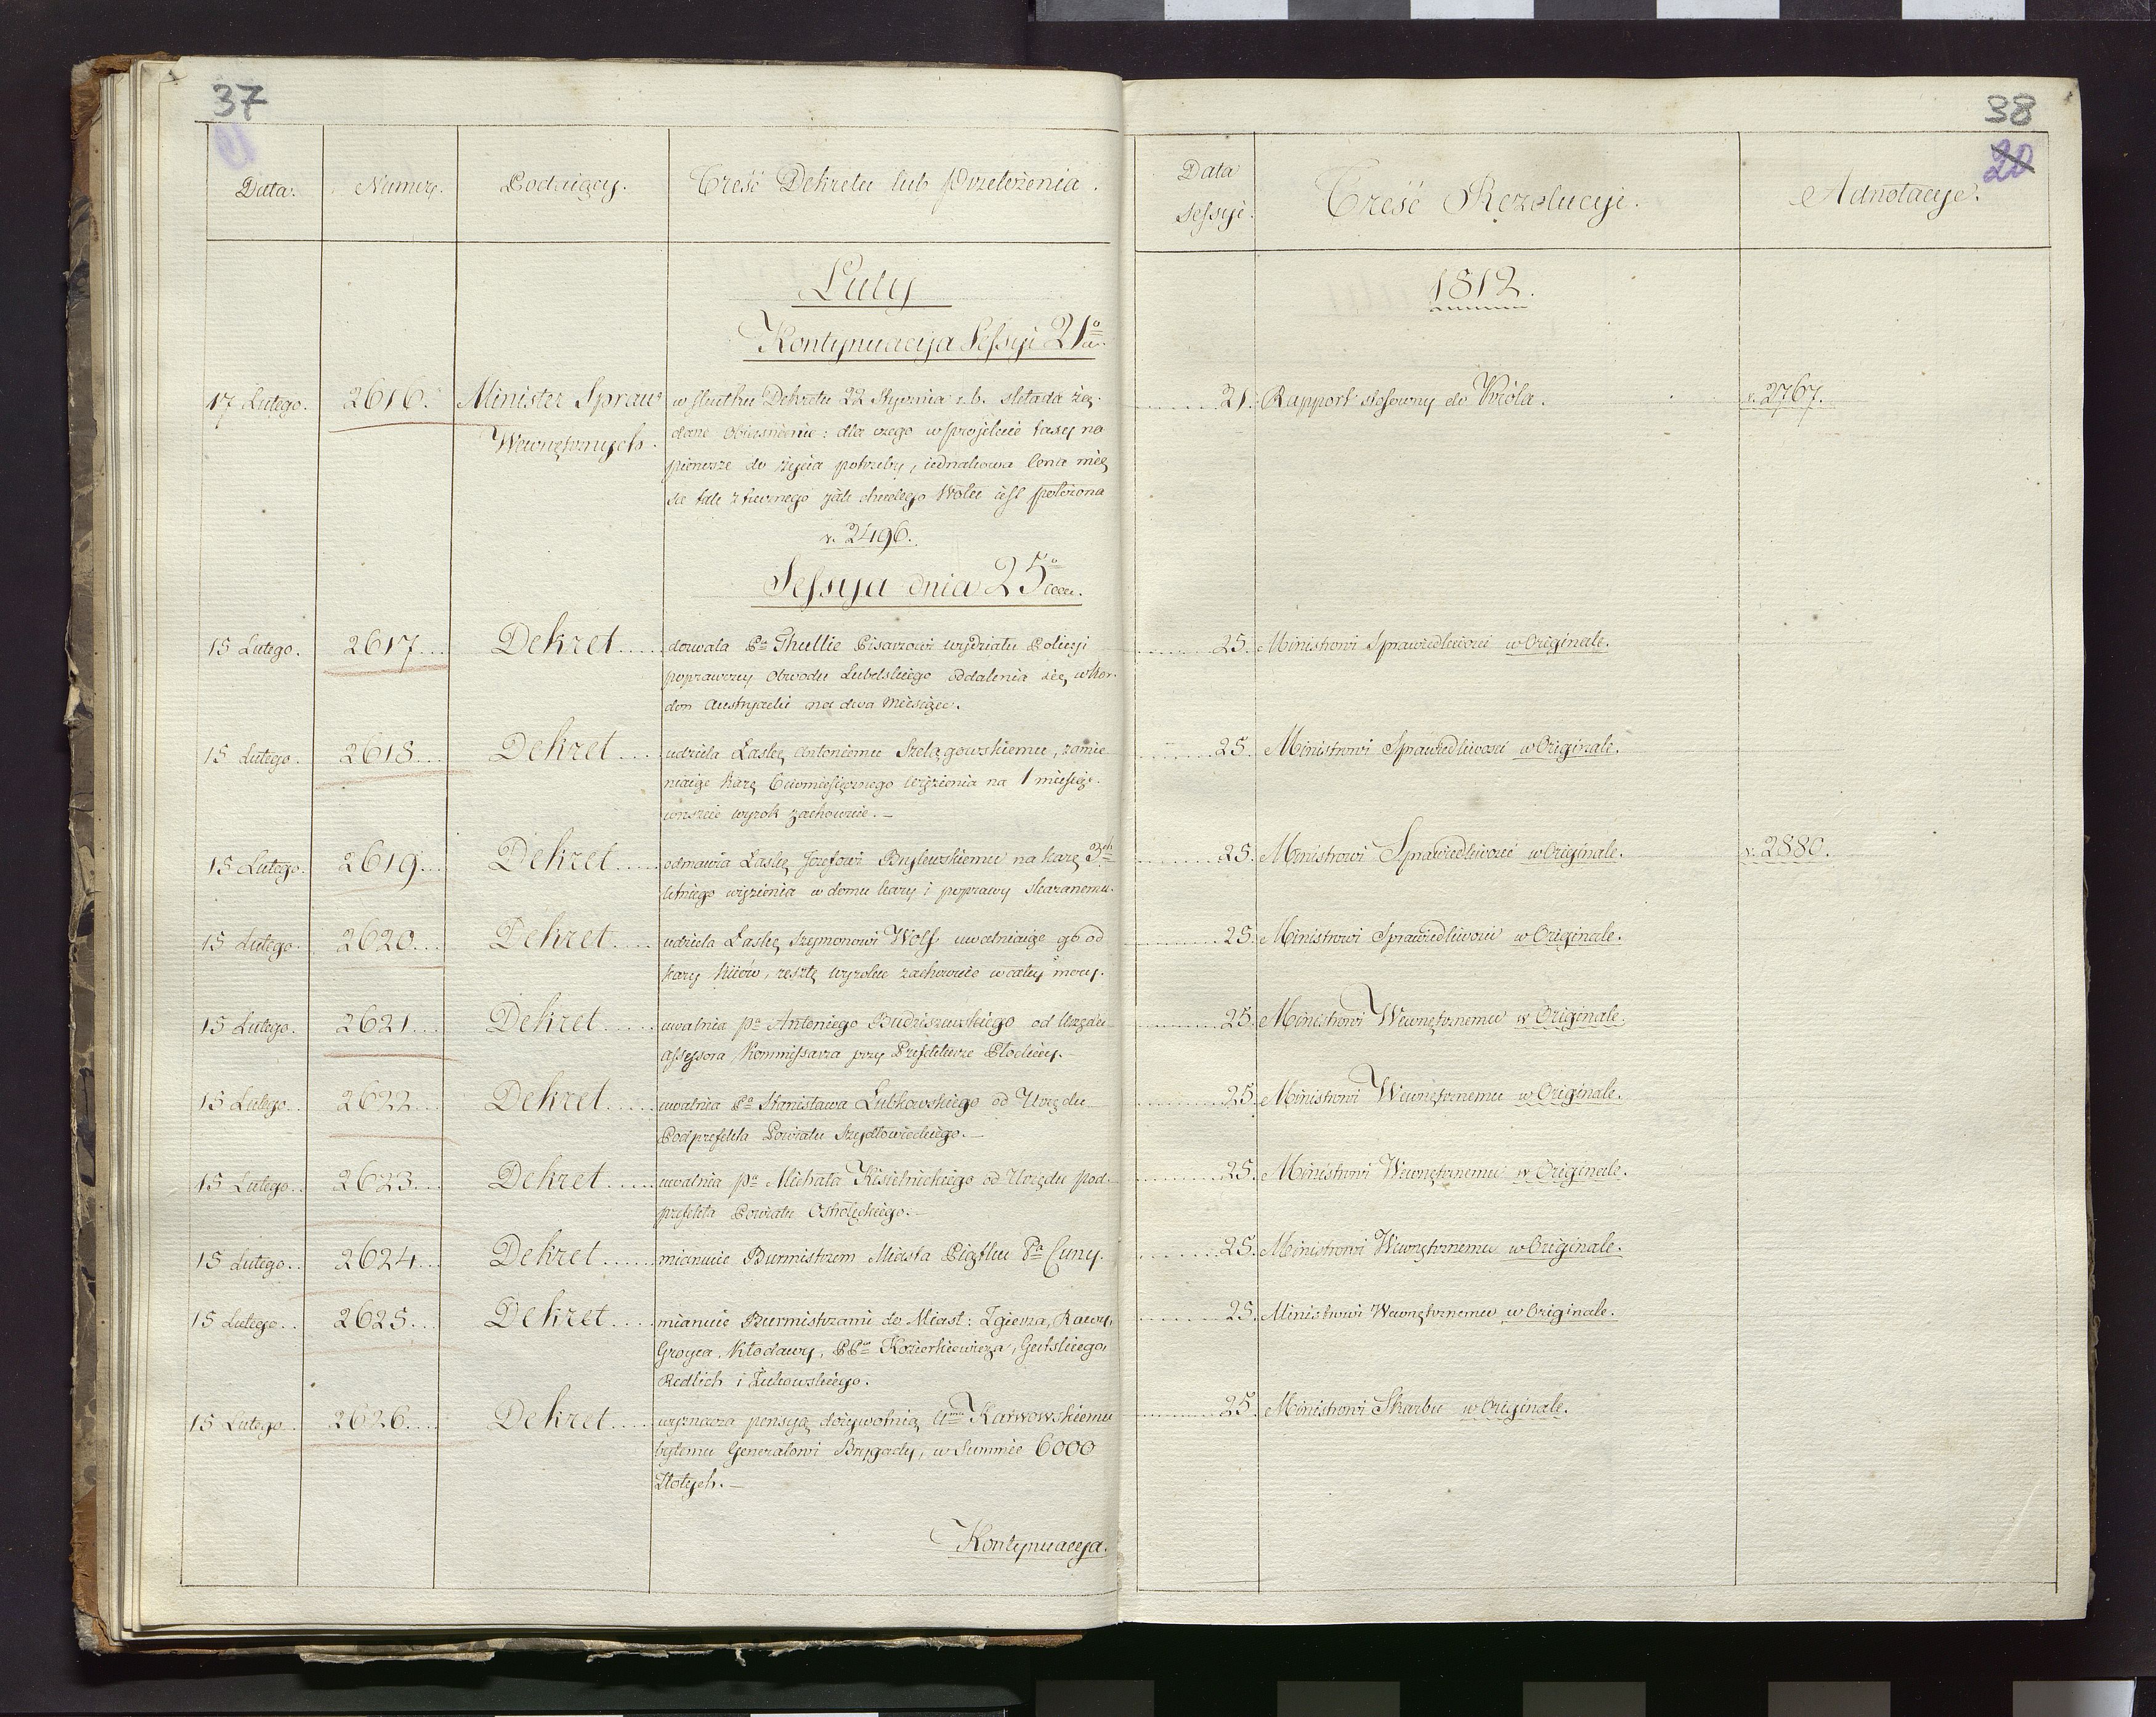 37
Data.
Numer.
Podaiący.
Treść Dekretu lub Przełożenia.
Luty
Kontynuacyja Sessyi 21º
17 Lutego. 2616. Minister Spraw
Wewnętrznych.
w skutku Dekretu 22 Stycznia r.b. składa żą-
dane obiaśnienie: dla czego w projekcie taxy na
pierwsze do życia potrzeby, iednakowa Cena mię
sa tak z tucznego jak chudego Wołu iest położona
v. 2496.
Sessyja dnia 25º
15 Lutego. 2617.... Dekret.....
dozwala Pu Thullie Pisarzowi wydziału Policyi
poprawczey Obwodu Lubelskiego oddalenia się w kor-
don Austryacki na dwa Miesiące.
15 Lutego. 2618.... Dekret....
udziela Łaskę Antoniemu Szelągowskiemu, zamie
niaiąc karę 6ciomiesięcznego więzienia na 1 miesiąc.
wreszcie wyrok zachowuie.—
15 Lutego. 2619... Dekret.....
odmawia Łaskę Jozefowi Bnylewskiemu na karę 3ch
letniego więzienia w domu kary i poprawy skazanemu.
15 Lutego. 2620.... Dekret....
udziela Łaskę Szymonowi Wolf, uwalniaiąc go od
kary kiiów, resztę wyroku zachowuie w całey mocy.
15 Lutego. 2621.... Dekret......
uwalnia Pa Antoniego Budziszewskiego od Urzędu
Assessora Kommissarza przy Prefekturze Płockiey.—
15 Lutego. 2622.... Dekret......
uwalnia Pa Stanisława Lutkowskiego od Urzędu
Podprefekta Powiatu Szydłowieckiego.—
15 Lutego.. 2623.... Dekret......
uwalnia Pa Michała Kisielnickiego od Urzędu Pod-
prefekta Powiatu Ostrołęckiego.—
15 Lutego.. 2624.... Dekret......
mianuie Burmistrzem Miasta Piątku Pa Cuny.
15 Lutego.. 2625.... Dekret....
mianuie Burmistrzami do Miast: Zgierza, Rawy,
Groyca, Kłodawy, PPw Kozierkiewicza, Gutskiego,
Redlich i Żukowskiego.
15 Lutego.. 2626.... Dekret.....
wyznacza pensyą dożywotnią Karwowskiemu
byłemu Generałowi Brygady, w Summie 6000
Złotych.—
Kontynuacyja.
38
20
Data
Sessyi.
Treść Rezolucyi.
Adnotacyje.
1812.
21. Rapport stosowny do Króla. v. 2767.
25. Ministrowi Sprawiedliwości w Originale.
25. Ministrowi Sprawiedliwości w Originale.
25. Ministrowi Sprawiedliwości w Originale. v. 2880.
25. Ministrowi Sprawiedliwości w Originale.
25. Ministrowi Wewnętrznemu w Originale.
25. Ministrowi Wewnętrznemu w Originale.
25. Ministrowi Wewnętrznemu w Originale.
25. Ministrowi Wewnętrznemu w Originale.
25. Ministrowi Wewnętrznemu w Originale.
25. Ministrowi Skarbu w Originale.